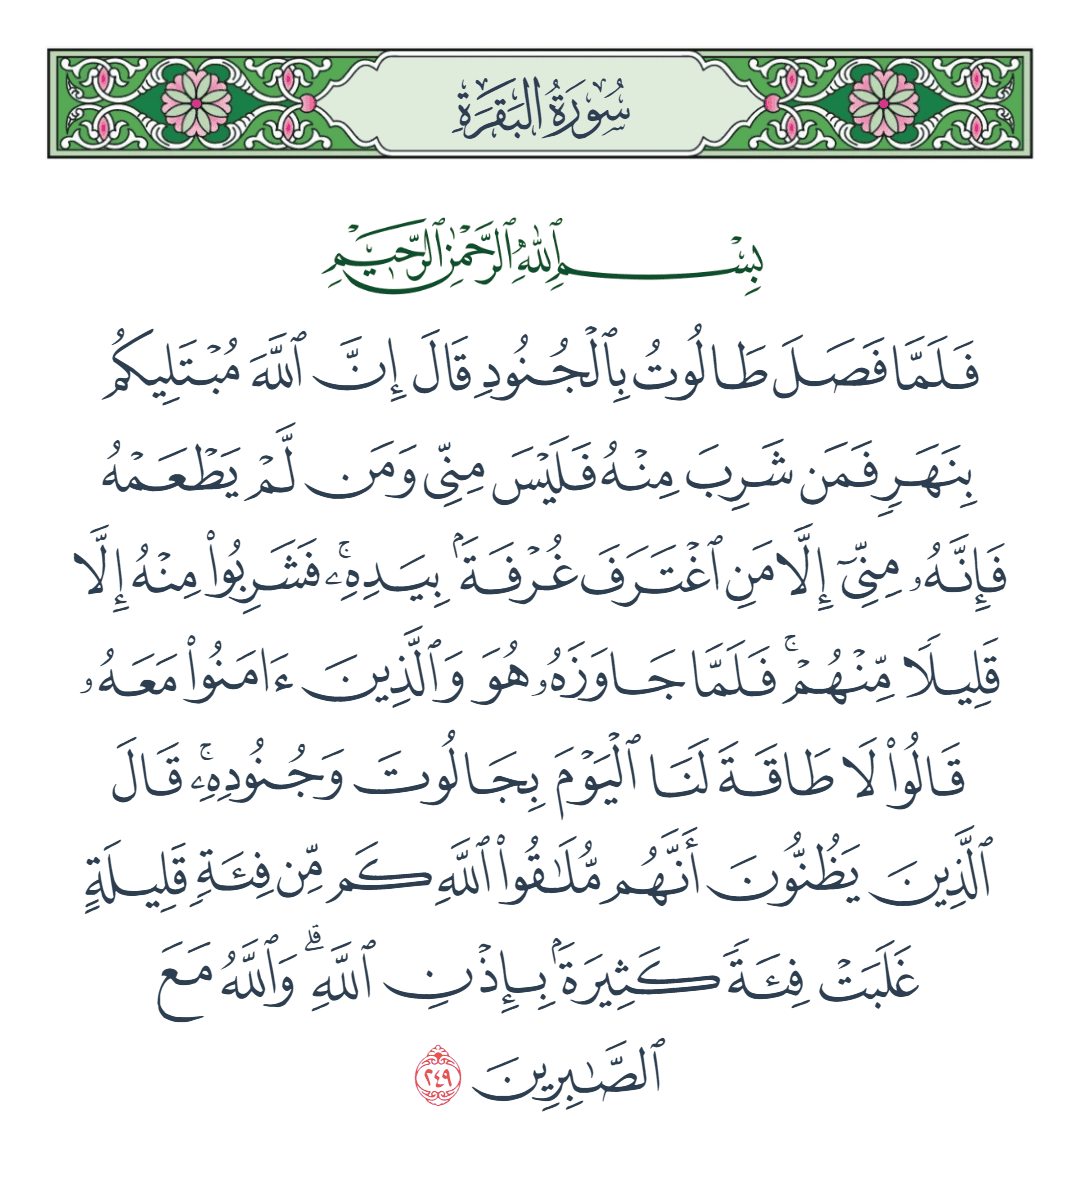 سُورَةُ البَقَرَةِ
بِسْمِ ٱللَّهِ ٱلرَّحْمَٰنِ ٱلرَّحِيمِ
فَلَمَّا فَصَلَ طَالُوتُ بِٱلْجُنُودِ قَالَ إِنَّ ٱللَّهَ مُبْتَلِيكُم
بِنَهَرٍ فَمَن شَرِبَ مِنْهُ فَلَيْسَ مِنِّى وَمَن لَّمْ يَطْعَمْهُ
فَإِنَّهُۥ مِنِّىٓ إِلَّا مَنِ ٱغْتَرَفَ غُرْفَةًۢ بِيَدِهِۦ ۚ فَشَرِبُوا۟ مِنْهُ إِلَّا
قَلِيلًا مِّنْهُمْ ۚ فَلَمَّا جَاوَزَهُۥ هُوَ وَٱلَّذِينَ ءَامَنُوا۟ مَعَهُۥ
قَالُوا۟ لَا طَاقَةَ لَنَا ٱلْيَوْمَ بِجَالُوتَ وَجُنُودِهِۦ ۚ قَالَ
ٱلَّذِينَ يَظُنُّونَ أَنَّهُم مُّلَٰقُوا۟ ٱللَّهِ كَم مِّن فِئَةٍ قَلِيلَةٍ
غَلَبَتْ فِئَةً كَثِيرَةًۢ بِإِذْنِ ٱللَّهِ ۗ وَٱللَّهُ مَعَ
ٱلصَّٰبِرِينَ ٢٤٩